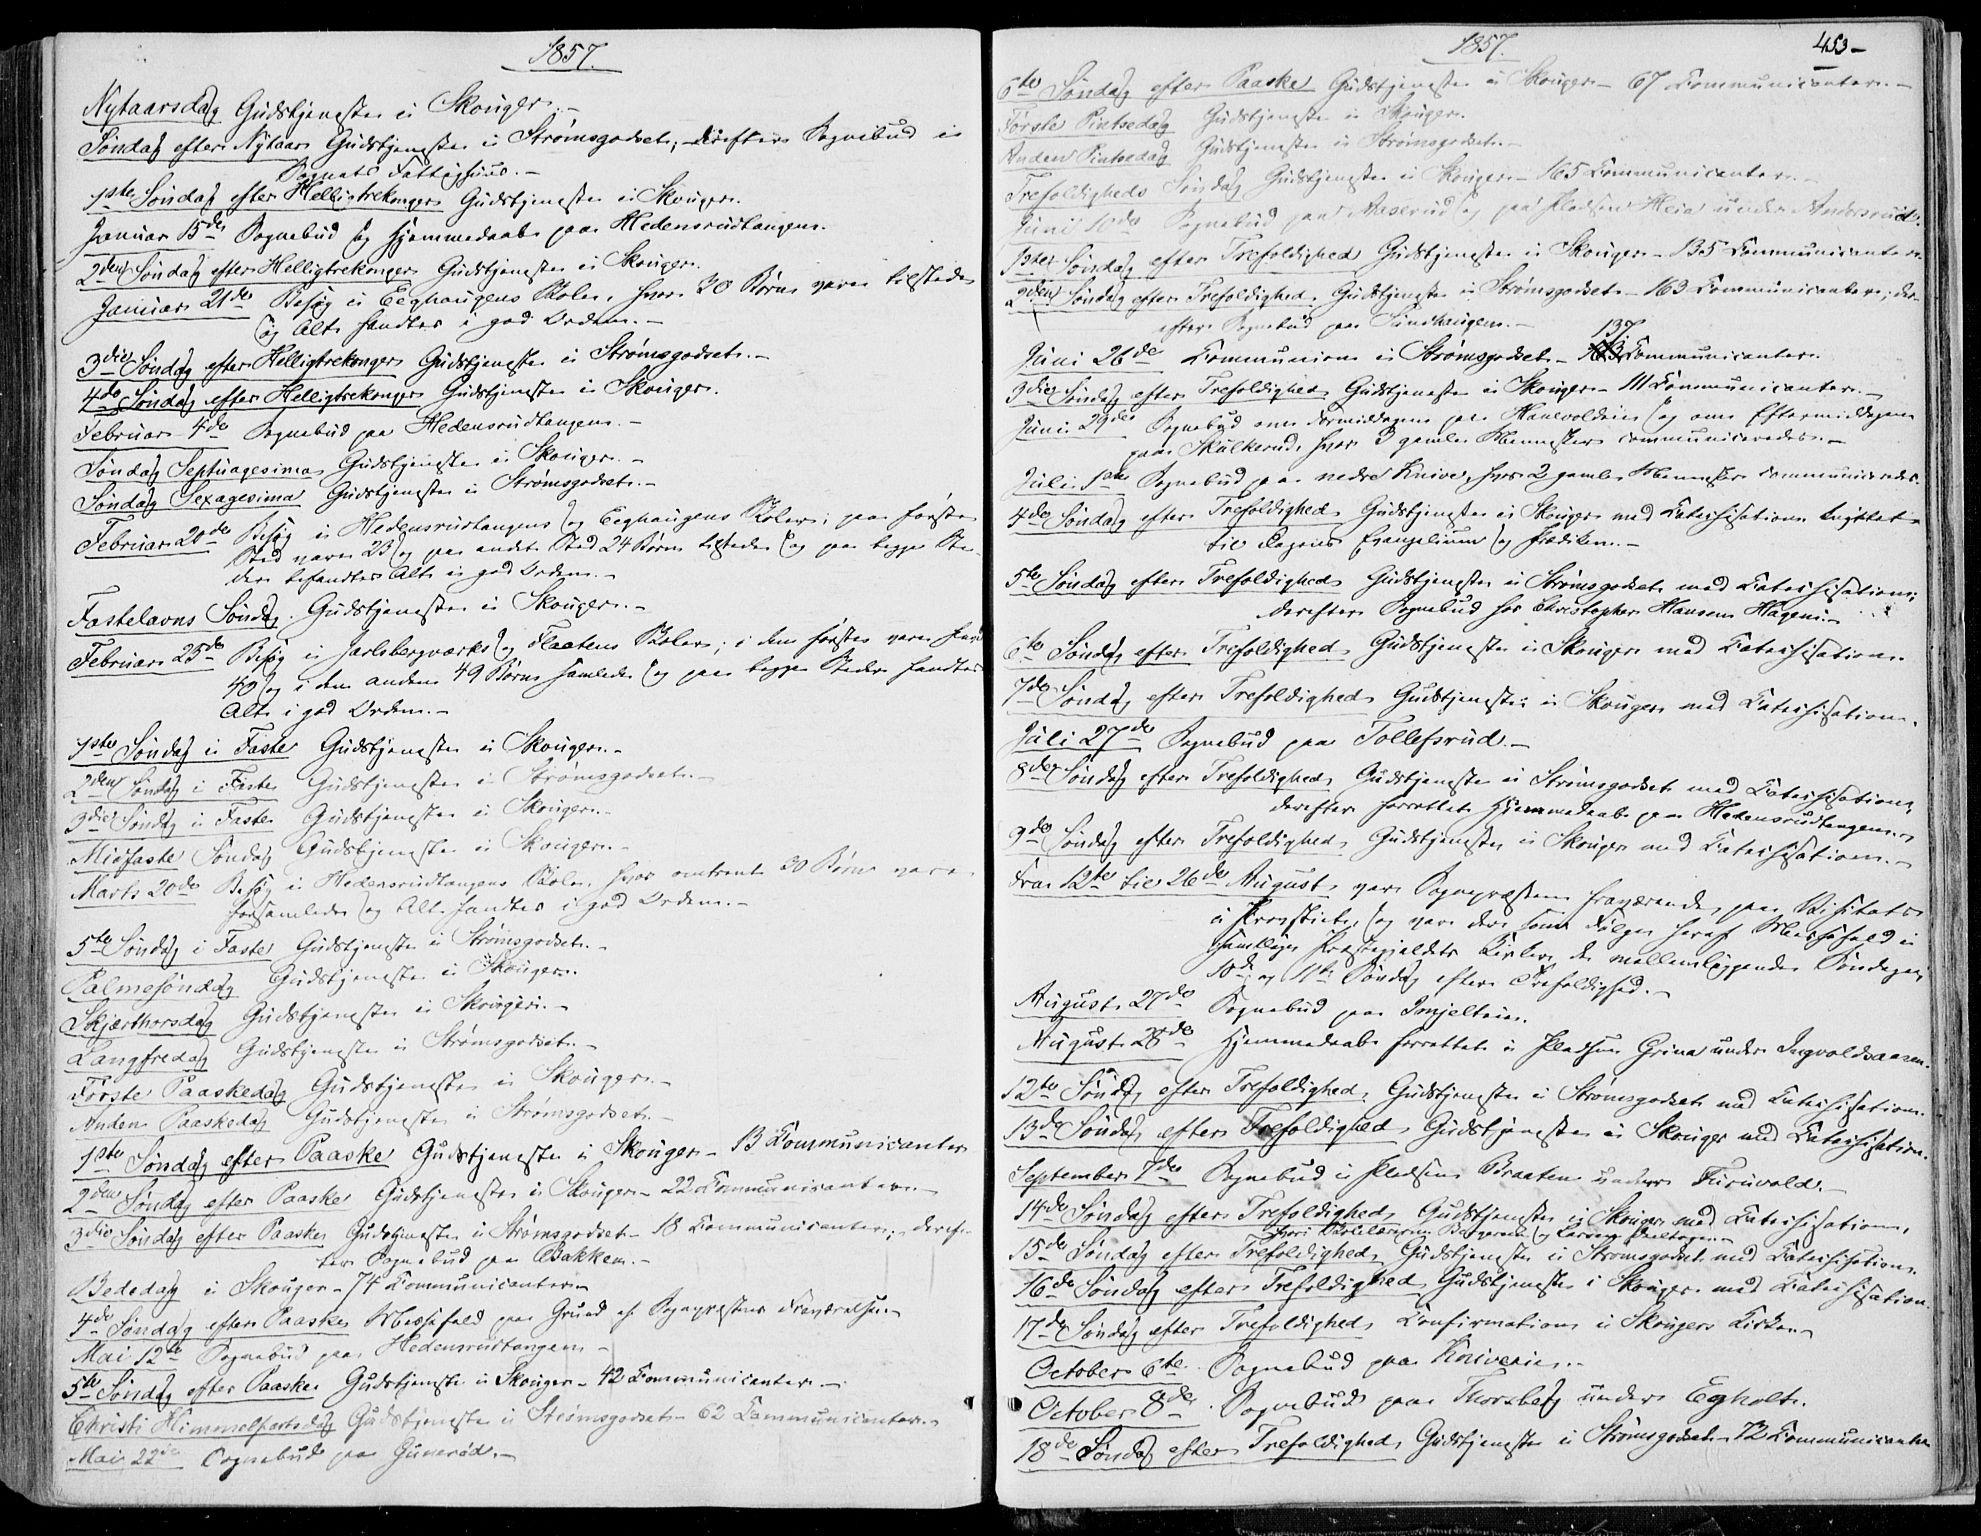 1857.
Nytaarsdag Gudstjeneste i Skouger.-
Søndag efter Nytaar Gudstjeneste i Strømsgodset, derefter Sognebud i
Sognets Fattighuus.-
1ste Søndag efter Helligtrekonger Gudstjeneste i Skouger.
Januar 15de Sognebud og Hjemmedaab paa Hedensrudtangen.
2den Søndag efter Helligtrekonger Gudstjeneste i Skouger.
Januar 21de Besøg i Eeghaugens Skole, hvor 20 Børn vare tilstede
og Alt fandtes i god Orden.-
3die Søndag efter Helligtrekonger Gudstjeneste i Strømsgodset.-
4de Søndag efter Helligtrekonger Gudstjeneste i Skouger.
Februar 4de Sognebud paa Hedensrudtangen.-
Søndag Septuagesima Gudstjeneste i Skouger.-
Søndag Sexagesima Gudstjeneste i Strømsgodset.-
Februar 20de Besøg i Hedensrudtangens og Eeghaugens Skoler; paa første
Sted vare 23 og paa andet Sted 24 Børn tilstede og paa begge Ste-
der befandtes Alt i god Orden.-
Fastelavns Søndag. Gudstjeneste i Skouger.-
Februar 25de Besøg i Jarlsbergværks og Flaatens Skoler; i den første vare
40 og i den anden 49 Børn samlede og paa begge Steder fandtes
Alt i god Orden.-
1ste Søndag i Faste Gudstjeneste i Skouger.-
2den Søndag i Faste Gudstjeneste i Strømsgodset.-
3die Søndag i Faste Gudstjeneste i Skouger.-
Midfaste Søndag Gudstjeneste i Skouger.-
Marts 20de Besøg i Hedensrudtangens Skole, hvor omtrent 30 Børn vare
forsamlede og Alt fandtes i god Orden.-
5te Søndag i Faste Gudstjeneste i Strømsgodset.-
Palmesøndag Gudstjeneste i Skouger.
Skjærthorsdag Gudstjeneste i Skouger.-
Langfredag Gudstjeneste i Strømsgodset.-
Første Paaskedag Gudstjeneste i Skouger.-
Anden Paaskedag Gudstjeneste i Strømsgodset.-
1ste Søndag efter Paaske Gudstjeneste i Skouger - 13 Communicanter
2den Søndag efter Paaske Gudstjeneste i Skouger - 22 Communicanter.-
3die Søndag efter Paaske Gudstjeneste i Strømsgodset - 18 Communicanter; deref-
ter Sognebud paa Bakken.-
Bededag i Skouger - 74 Communicanter.-
4de Søndag efter Paaske Messefald paa Grund af Sognepræstens Fraværelse.-
Mai 12te Sognebud paa Hedensrudtangen.-
5te Søndag efter Paaske Gudstjeneste i Skouger - 42 Communicanter.-
Christi Himmelfartsdag Gudstjeneste i Strømsgodset - 62 Communicanter.-
Mai 22de Sognebud paa Gunerød.-
1857. 453-
6te Søndag efter Paaske Gudstjeneste i Skouger - 67 Communicanter.-
Første Pintsedag Gudstjeneste i Skouger.
Anden Pintsedag Gudstjeneste i Strømsgodset.-
Trefoldigheds Søndag Gudstjeneste i Skouger - 165 Communicanter.-
Juni 10de Sognebud paa Aaserud og paa Pladsen Heia under Andorsrud.
1ste Søndag efter Trefoldighed Gudstjeneste i Skouger - 135 Communicanter.
2den Søndag efter Trefoldighed Gudstjeneste i Strømsgodset - 163 Communicanter; der-
efter Sognebud paa Sundhaugen.-
Juni 26de Communion i Strømsgodset - 137 Communicanter.
3die Søndag efter Trefoldighed Gudstjeneste i Skouger - 111 Communicanter.-
Juni 29de Sognebud om Formiddagen paa Hanevoldeie og om Eftermiddagen
paa Skulkerud, hvor 3 gamle Mennesker communicerede.-
Juli 1ste Sognebud paa nedre Knive, hvor 2 gamle Mennesker communicerede.
4de Søndag efter Trefoldighed Gudstjeneste i Skouger med Catechisation knyttet
til Dagens Evangelium og Prædiken.-
5te Søndag efter Trefoldighed Gudstjeneste i Strømsgodset med Catechisation;
derefter Sognebud hos Christopher Hansen Hagen.-
6te Søndag efter Trefoldighed Gudstjeneste i Skouger med Catechisation.
7de Søndag efter Trefoldighed Gudstjeneste i Skouger med Catechisation.
Juli 27de Sognebud paa Tollefsrud.-
8de Søndag efter Trefoldighed Gudstjeneste i Strømsgodset med Catechisation;
derefter forrettet Hjemmedaab paa Hedensrudtangen.-
9de Søndag efter Trefoldighed Gudstjeneste i Skouger med Catechisation.-
Fra 12te til 26de August var Sognepræsten fraværende paa Visitats
i Provstiet, og var der som Følge heraf Messefald i
samtlige Præstegjeldets Kirker de mellemliggende Søndage,
10de og 11te Søndag efter Trefoldighed.-
August 27de Sognebud paa Imjelteie.
August 28de Hjemmedaab forrettet i Pladsen Grina under Ingvoldsaasen.
12te Søndag efter Trefoldighed Gudstjeneste i Strømsgodset med Catechisation.
13de Søndag efter Trefoldighed Gudstjeneste i Skouger med Catechisation.
September 7de Sognebud i Pladsen Braaten under Furuvald.-
14de Søndag efter Trefoldighed Gudstjeneste i Skouger med Catechisation,
15de Søndag efter Trefoldighed Gudstjeneste i Strømsgodset med Catechisation.
16de Søndag efter Trefoldighed Gudstjeneste i Skouger med Catechisation.
17de Søndag efter Trefoldighed Confirmation i Skouger Kirke.-
October 6te Sognebud paa Kniveeie.-
October 8de Sognebud paa Thorsberg under Egholt.
18de Søndag efter Trefoldighed Gudstjeneste i Strømsgodset - 72 Communicanter